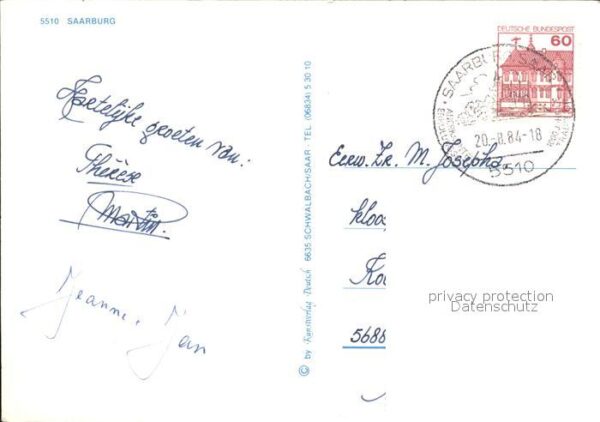 5510 SAARBURG
Hartelijke groeten van:
Thérèse
Martin
Jeanne, Jan
© by Kunstverlag Deutsch 6635 SCHWALBACH/SAAR - TEL. (06834) 5 30 10
DEUTSCHE BUNDESPOST
60
SAARBURG
20.-8.84-18
5510
Eerw. Zr. M. Josepha
kloo
5688
privacy protection
Datenschutz